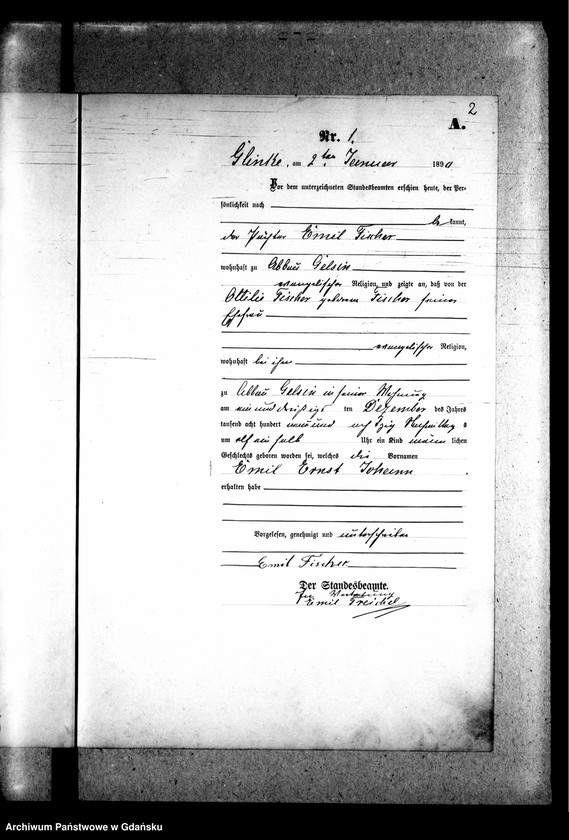 2
A.
Nr. 1.
Glinke, am 2ten Januar 1890
Vor dem unterzeichneten Standesbeamten erschien heute, der Per-
sönlichkeit nach
be kannt,
der Pächter Emil Fischer
wohnhaft zu Abbau Gelsin
evangelischer Religion, und zeigte an, daß von der
Ottilie Fischer geborene Fischer seiner
Ehefrau
evangelischer Religion,
wohnhaft bei ihm
zu Abbau Gelsin in seiner Wohnung
am ein und dreißigs ten Dezember des Jahres
tausend acht hundert neun und achtzig Vormittags
um elf ein halb Uhr ein Kind männ lichen
Geschlechts geboren worden sei, welches die Vornamen
Emil Ernst Johann
erhalten habe
Vorgelesen, genehmigt und unterschrieben
Emil Fischer
Der Standesbeamte.
In Vertretung
Emil Treichel
Archiwum Państwowe w Gdańsku